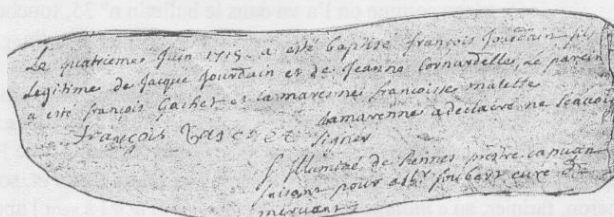 Le quatriemes Juin 1715 a esté baptisé françois Jourdain fils
Legitime de Jacque Jourdain et de Jeanne Cornardelles, Le parein
a esté françois Gachet et la marenne francoisse malette
Lamarenne a declaré ne scavoir
François Gaschet
signer
f Illuminé de Rennes prêtre capucin
faisant pour Mr Joubert curé